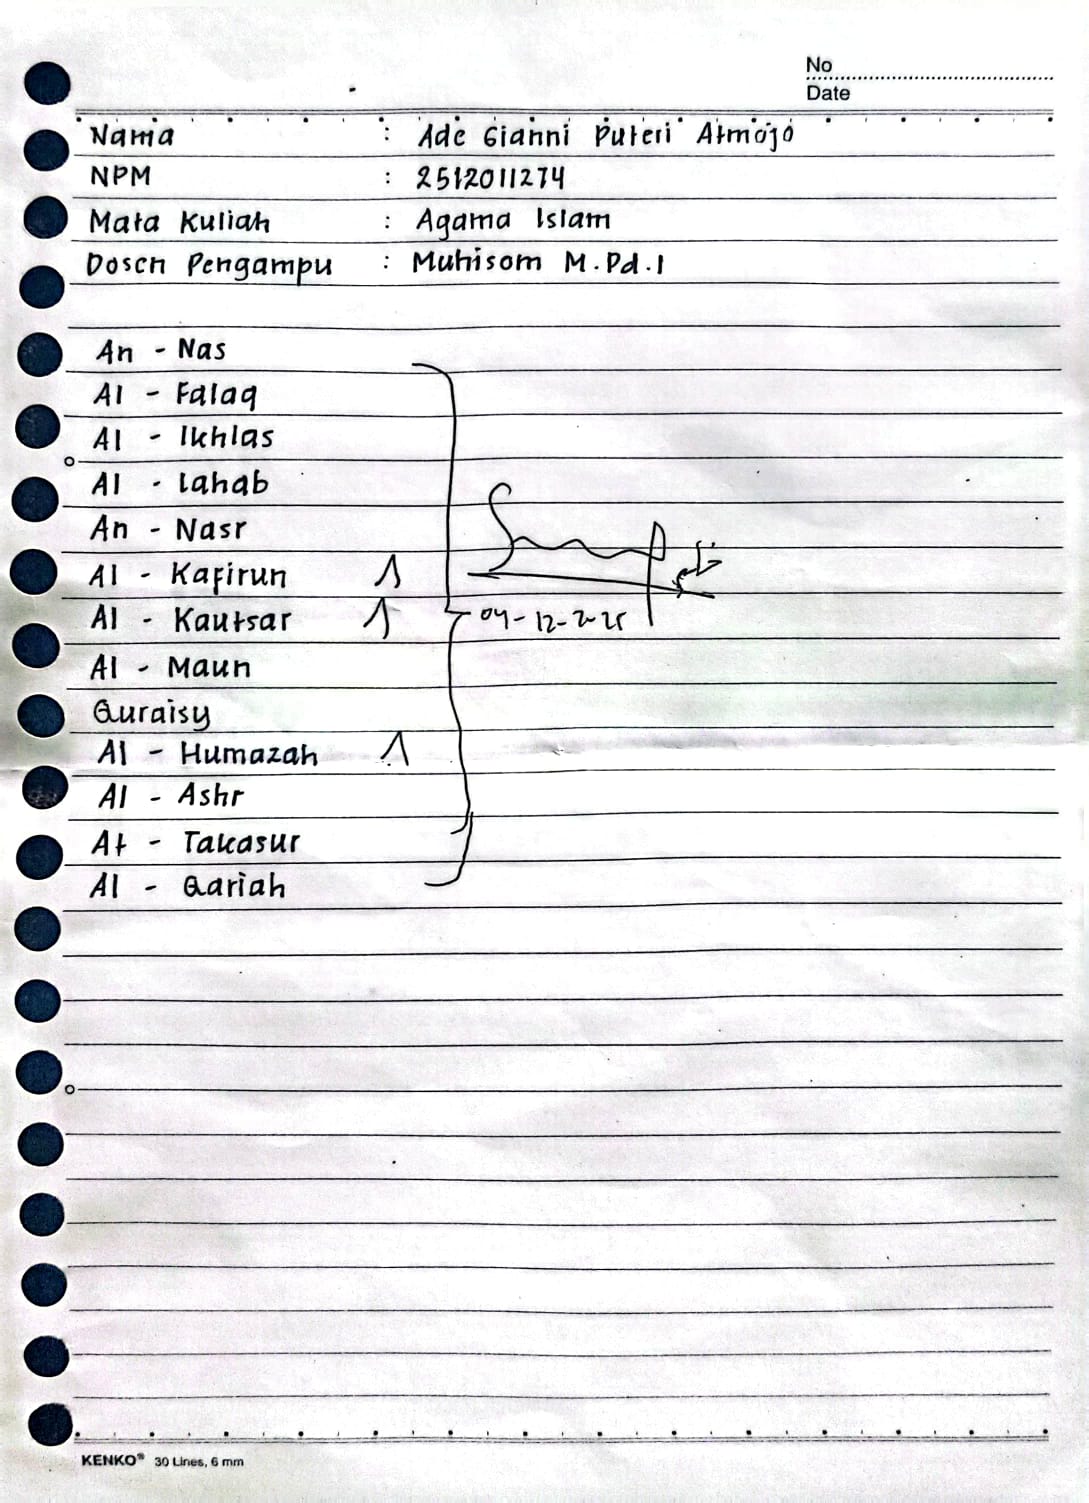 No
Date
Nama : Ade Gianni Puteri Atmojo
NPM : 2512011274
Mata Kuliah : Agama Islam
Dosen Pengampu : Muhisom M.Pd.I
An - Nas
Al - Falaq
Al - Ikhlas
Al - Lahab
An - Nasr
Al - Kafirun
Al - Kautsar
04-12-2025
Al - Maun
Quraisy
Al - Humazah
Al - Ashr
At - Takasur
Al - Qariah
KENKO® 30 Lines, 6 mm